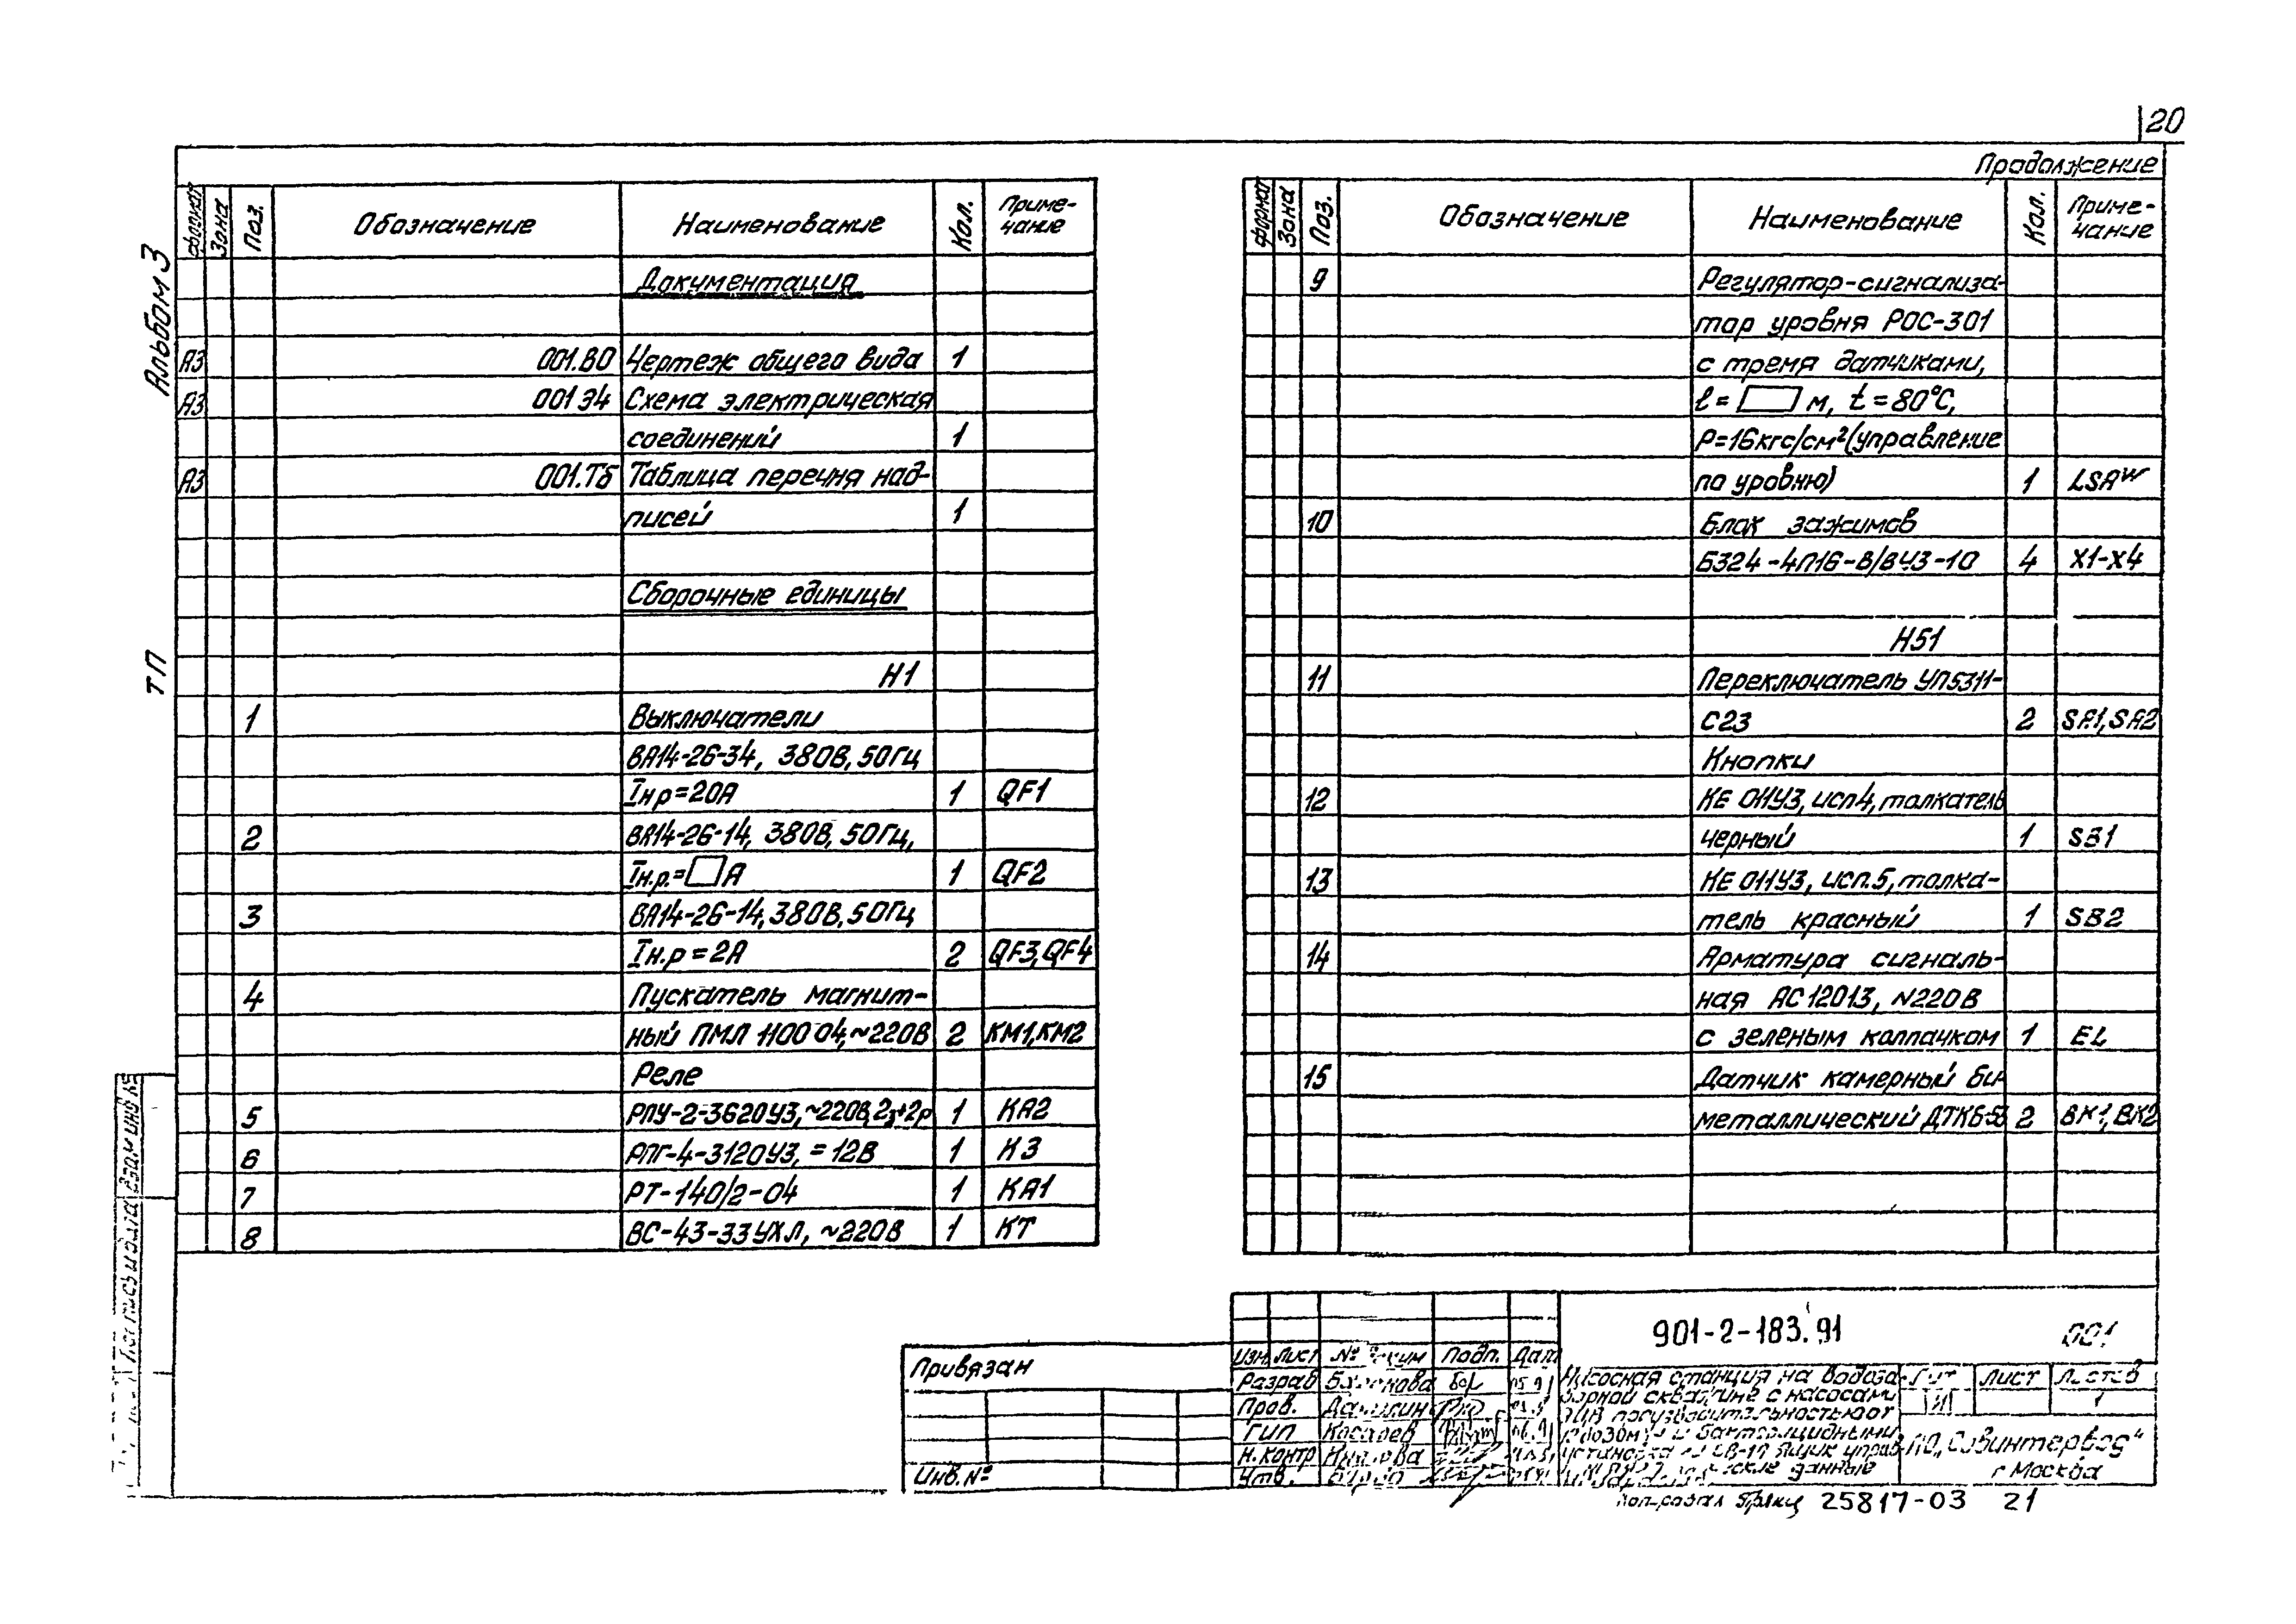 20
Продолжение
Альбом 3
ТП
Формат Зона Поз. Обозначение Наименование Кол. Приме-
чание
Документация
А3 001.ВО Чертеж общего вида 1
А3 001 Э4 Схема электрическая
соединений 1
А3 001.Тб Таблица перечня над-
писей 1
Сборочные единицы
Н1
1 Выключатели
ВА14-26-34, 380В, 50Гц
Iнр=20А 1 QF1
2 ВА14-26-14, 380В, 50Гц,
Iн.р.= А 1 QF2
3 ВА14-26-14, 380В, 50Гц
Iн.р=2А 2 QF3, QF4
4 Пускатель магнит-
ный ПМЛ 1100 04, ~220В 2 КМ1, КМ2
Реле
5 РПУ-2-3620У3, ~220В, 2з+2р 1 КА2
6 РПГ-4-3120У3, =12В 1 К3
7 РТ-140/2-04 1 КА1
8 ВС-43-33УХЛ, ~220В 1 КТ
Формат Зона Поз. Обозначение Наименование Кол. Приме-
чание
9 Регулятор-сигнализа-
тор уровня РОС-301
с тремя датчиками,
l= м, t=80°С,
Р=16кгс/см²(управление
по уровню) 1 LSAW
10 Блок зажимов
БЗ24-4П16-В/ВУ3-10 4 Х1-Х4
Н51
11 Переключатель УП5311-
С23 2 SA1, SA2
Кнопки
12 КЕ 011У3, исп4, толкатель
черный 1 SB1
13 КЕ 011У3, исп.5, толка-
тель красный 1 SB2
14 Арматура сигналь-
ная АС12013, ~220В
с зеленым колпачком 1 EL
15 Датчик камерный би-
металлический ДТКБ-53 2 ВК1, ВК2
Привязан
Инв.№
901-2-183.91 001
Изм. Лист № докум Подп. Дата
Разраб
Пров.
ГИП Косарев
Н.контр
Утв.
Насосная станция на водоза-
борной скважине с насосами
ЭЦВ производительностью от
бактерицидными
данные
Лист Листов
1
ПО „Совинтервод"
г Москва
Копировал 25817-03 21